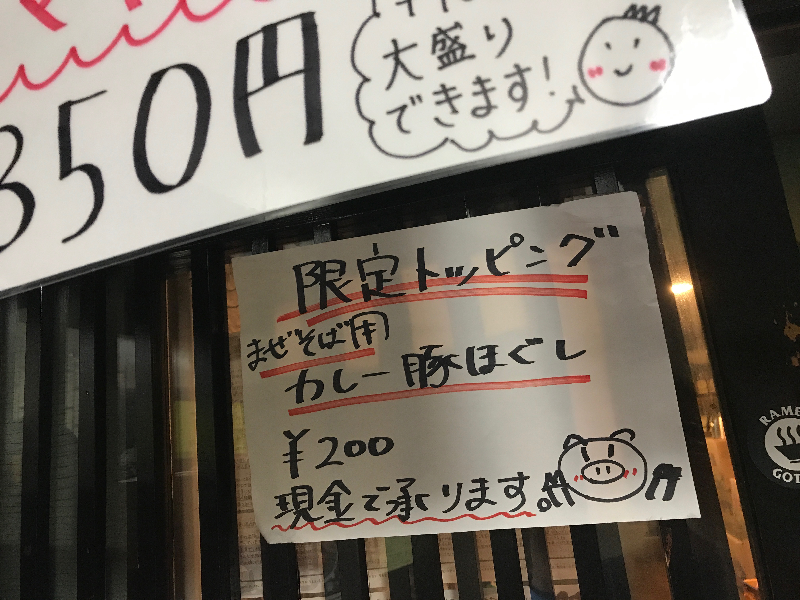 850円
大盛り
できます!
限定トッピング
まぜそば用
カレー豚ほぐし
¥200
現金で承ります。